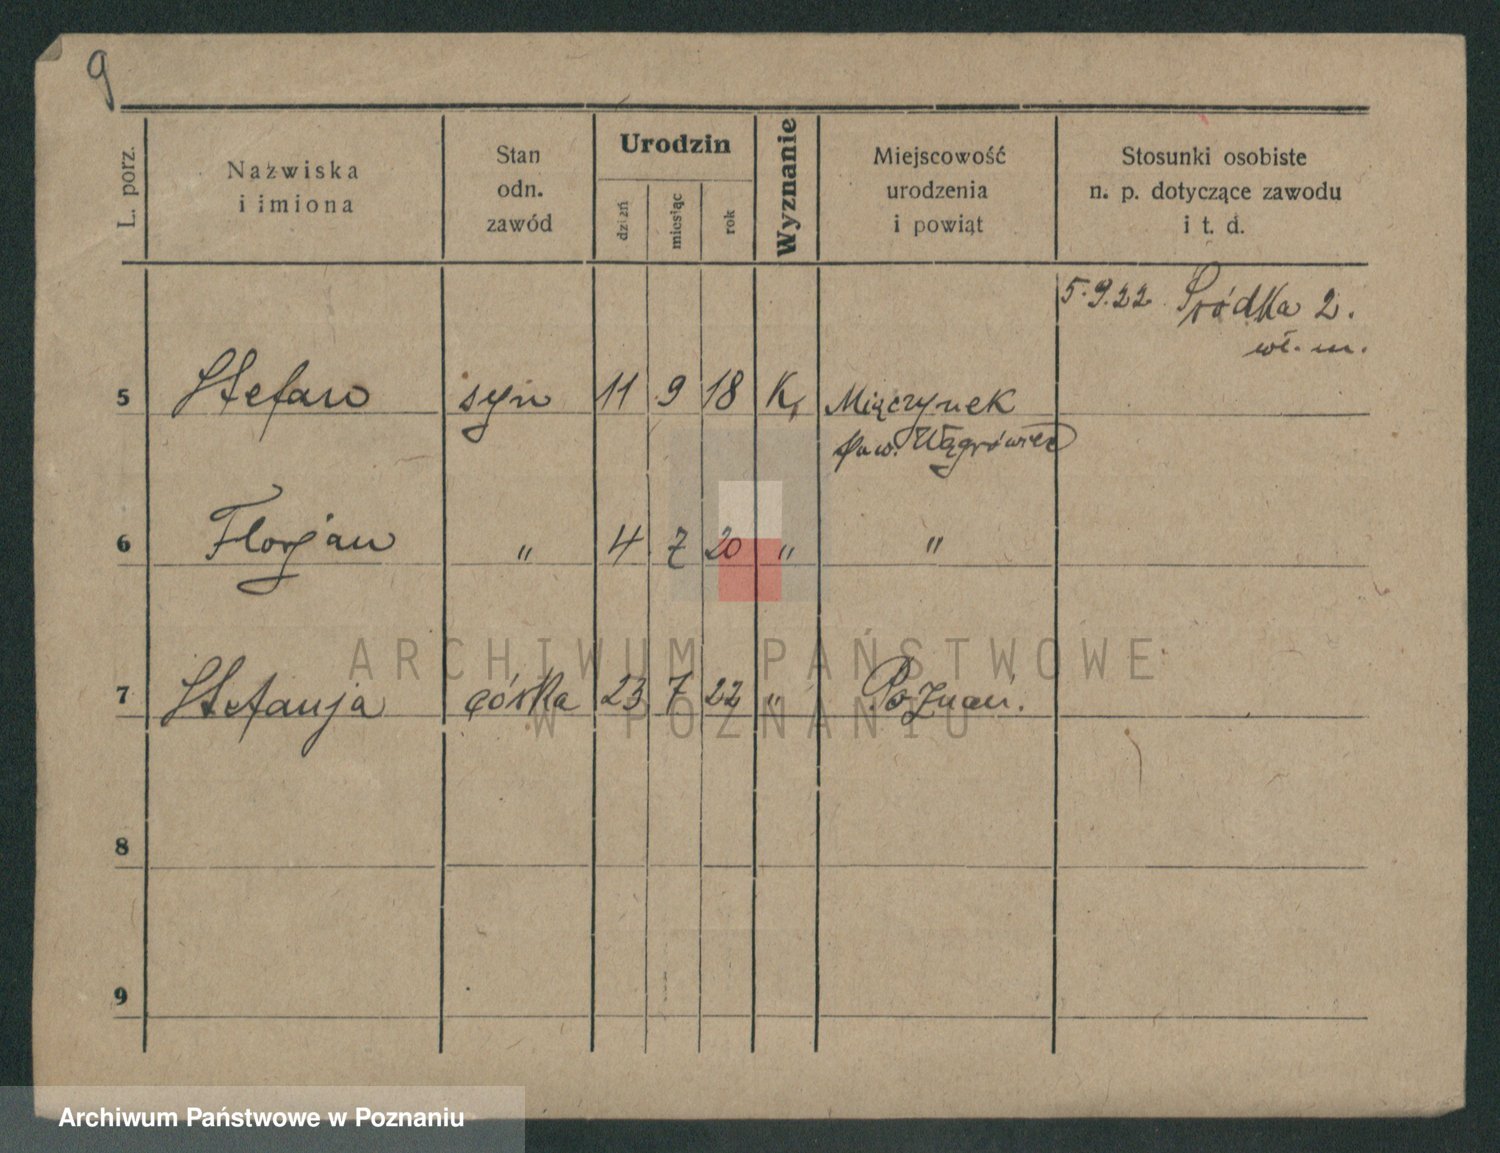 9
L. porz.
Nazwiska
i imiona
Stan
odn.
zawód
Urodzin
dzień
miesiąc
rok
Wyznanie
Miejscowość
urodzenia
i powiąt
Stosunki osobiste
n. p. dotyczące zawodu
i t. d.
5.9.22 Śródka 2.
wł. m.
5 Stefan syn 11 9 18 K, Miączynek
pow. Wągrówiec
6 Florjan " 4 7 20 " "
7 Stefanja córka 23 7 22 " Poznań.
8
9
ARCHIWUM PAŃSTWOWE
W POZNANIU
Archiwum Państwowe w Poznaniu